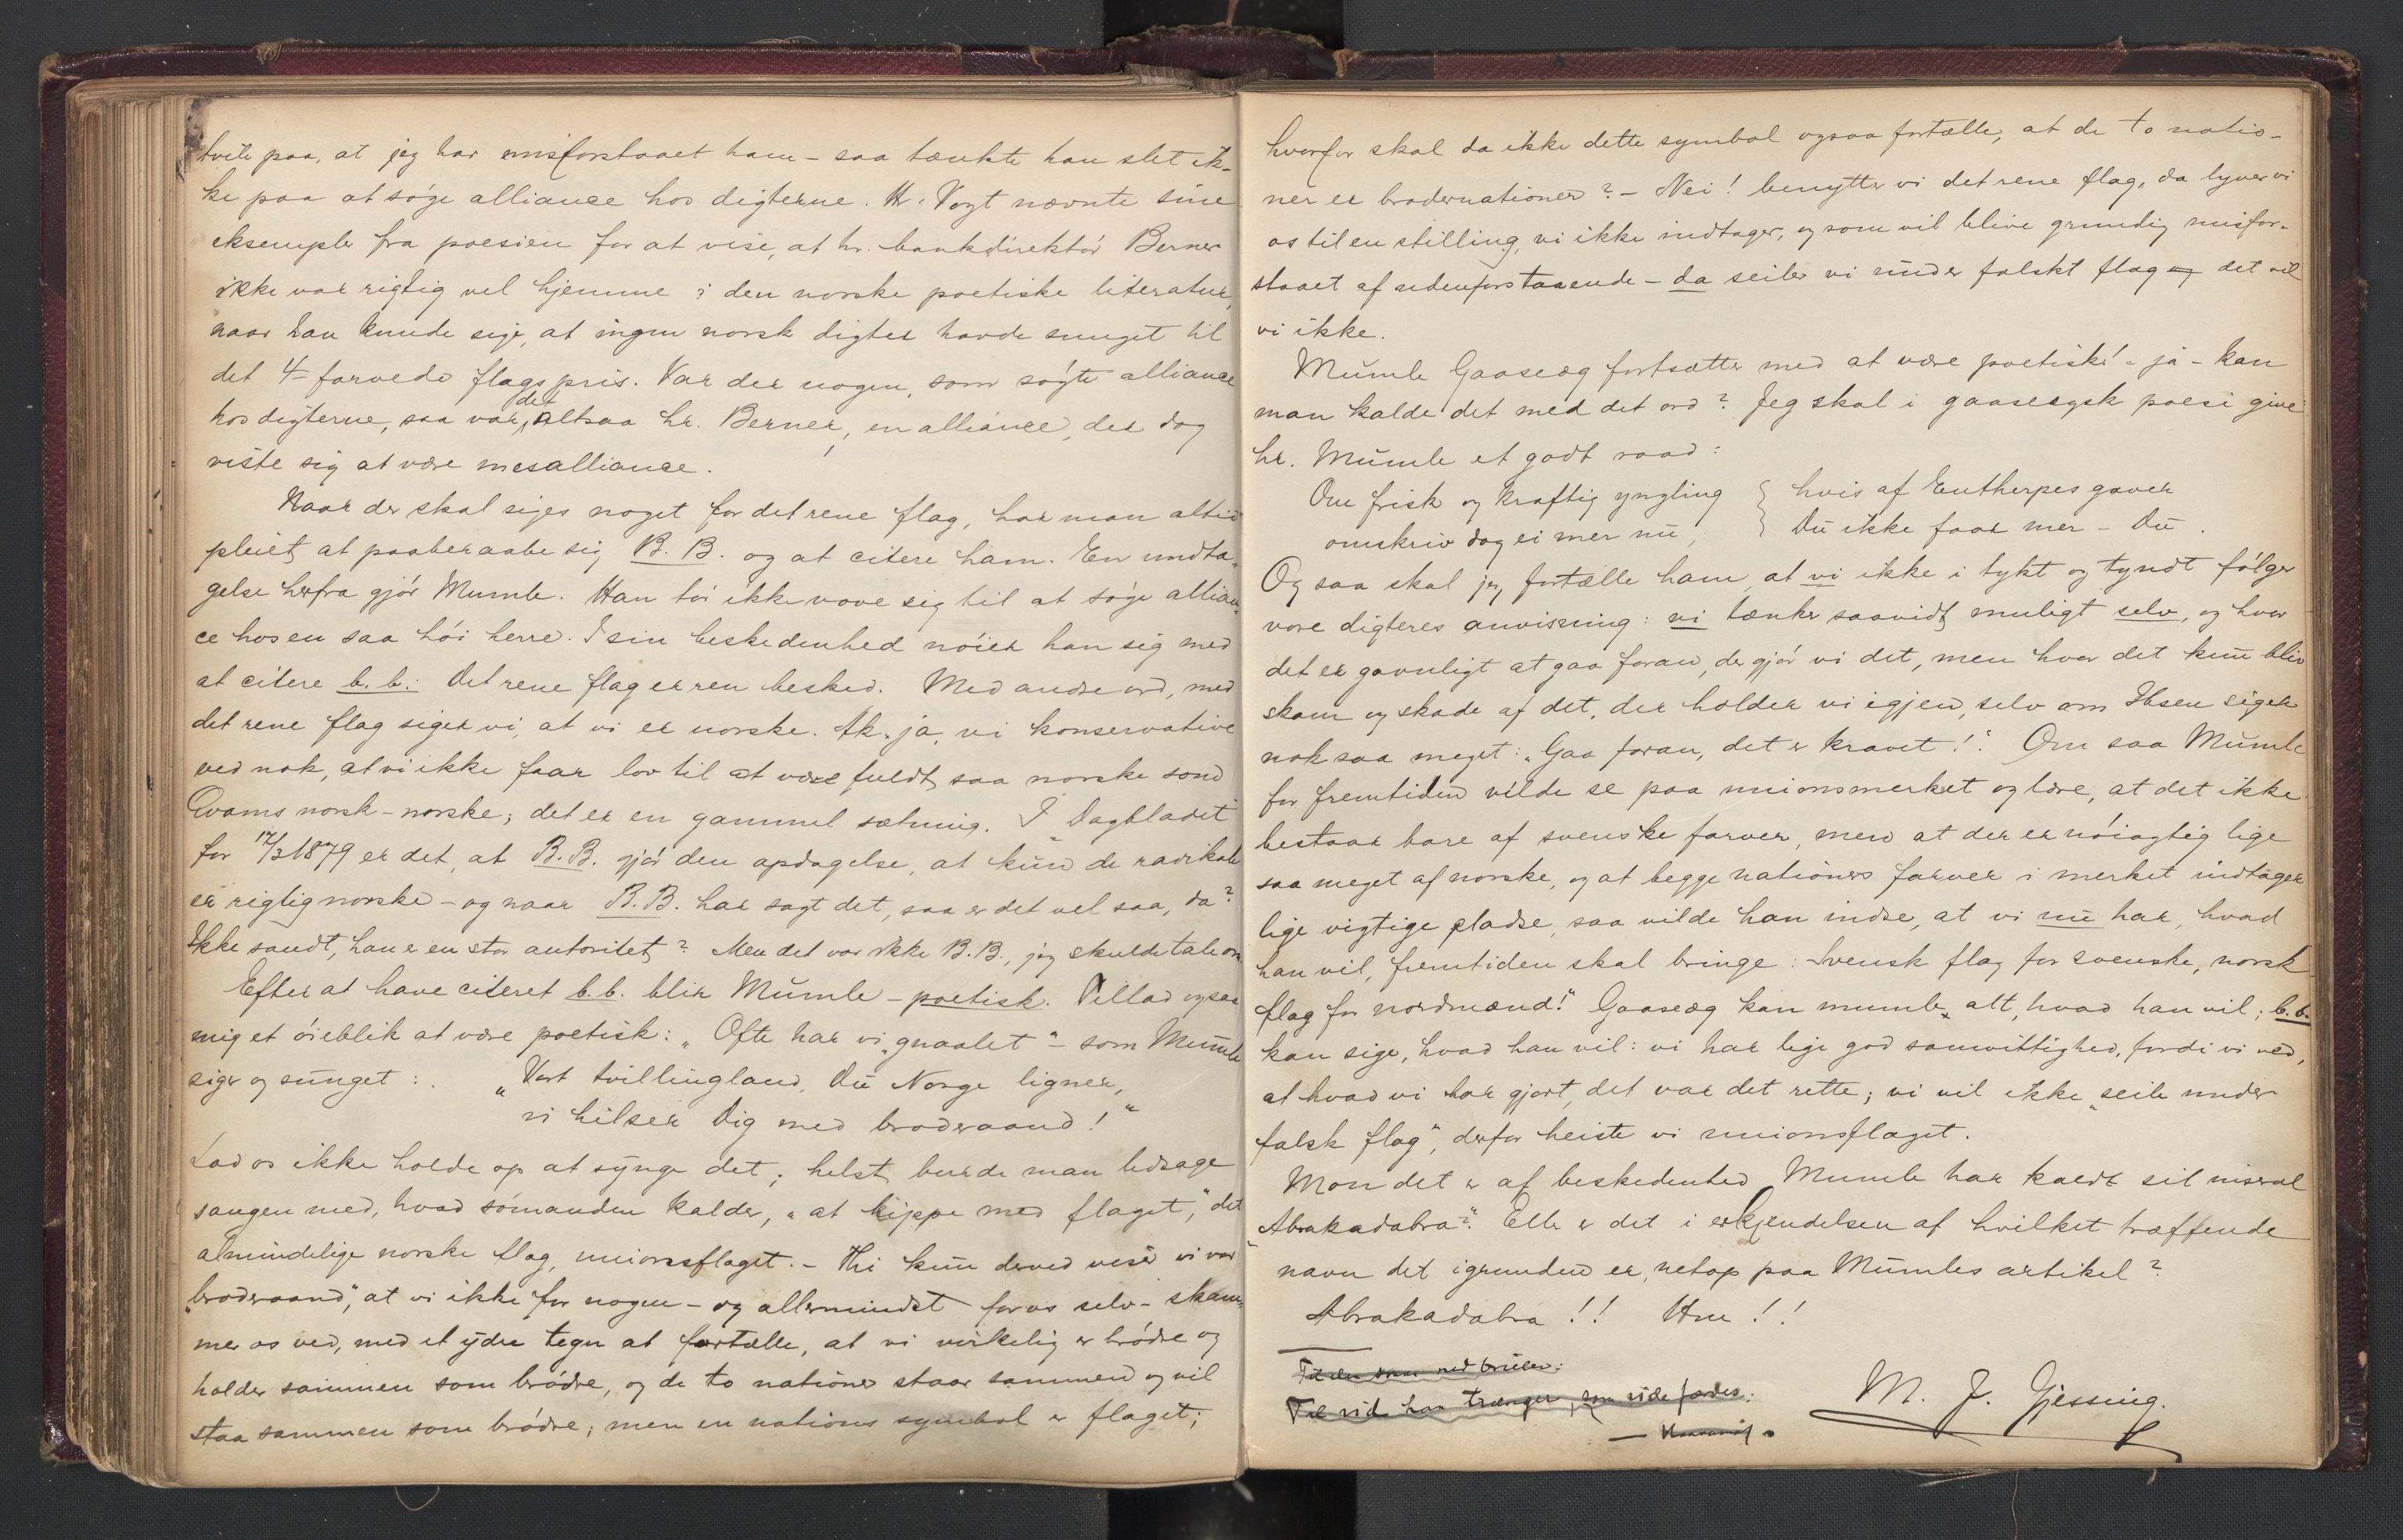 tvile paa, at jeg har misforstaaet ham – saa tænkte han slet ik-
ke paa at søge alliance hos digterne. Hr. Vogt nævnte sine
eksempler fra poesien for at vise, at hr. bankdirektør Berner
ikke var rigtig vel hjemme i den norske poetiske literatur,
naar han kunde sige, at ingen norsk digter havde sunget til
det 4-farvede flags pris. Var der nogen, som søgte alliance
hos digterne, saa var det altsaa hr. Berner, en alliance, der dog
viste sig at være mesalliance.
Naar der skal siges noget for det rene flag, har man altid
pleiet at paaberaabe sig B. B. og at citere ham. En undta-
gelse herfra gjør Mumle. Han tør ikke vove sig til at søge allian-
ce hos en saa høi herre. I sin beskedenhed nøier han sig med
at citere b. b.: Det rene flag er ren besked. Med andre ord, med
det rene flag siger vi, at vi er norske. Ak ja, vi konservative
ved nok, at vi ikke faar lov til at være fuldt saa norske som
Qvams norsk-norske; det er en gammel sætning. I "Dagbladet"
for 17/3 1879 er det, at B. B. gjør den opdagelse, at kun de radikale
er rigtig norske – og naar B. B. har sagt det, saa er det vel saa, da?
Ikke sandt, han er en stor autoritet? Men det var ikke B. B., jeg skulde tale om
Efter at have citeret b. b. blir Mumle – poetisk. Tillad ogsaa
mig et øieblik at være poetisk: "Ofte har vi "graalet" – som Mumle
siger og sunget: "Vort tvillingland, Du Norge ligner,
vi hilser Dig med broderaand!"
Lad os ikke holde op at synge det; helst burde man ledsage
sangen med, hvad sømanden kalder, "at kippe med flaget," det
almindelige norske flag, unionsflaget. – Thi kun derved viser vi vor
"broderaand", at vi ikke for nogen – og allermindst for os selv – skam-
mer os ved, med et ydre tegn at fortælle, at vi virkelig er brødre og
holder sammen som brødre, og de to nationer staar sammen og vil
staa sammen som brødre; men en nations symbol er flaget;
hvorfor skal da ikke dette symbol ogsaa fortælle, at de to natio-
ner er brodernationer? – Nei! benytter vi det rene flag, da lyver vi
os til en stilling, vi ikke indtager, og som vil blive grundig misfor-
staaet af udenforstaaende – da seiler vi under falskt flag og det vil
vi ikke.
Mumle Gaaseæg fortsætter med at være poetisk! – ja – kan
man kalde det med det ord? Jeg skal i gaaseægsk poesi give
hr. Mumle et godt raad:
Om frisk og kraftig yngling } hvis af Eutherpes gaver
omskriv dog ei mer nu, } Du ikke faar mer – Du.
Og saa skal jeg fortælle ham, at vi ikke i tykt og tyndt følger
vore digteres anvisning: vi tænker saavidt muligt selv, og hvor
det er gavnligt at gaa foran, der gjør vi det, men hvor det kun blir
skam og skade af det, der holder vi igjen, selv om Ibsen siger
nok saa meget: "Gaa foran, det er kravet!". Om saa Mumle
for fremtiden vilde se paa unionsmerket og lære, at det ikke
bestaar bare af svenske farver, men at der er nøiagtig lige
saa meget af norske, og at begge nationers farver i merket indtager
lige vigtige pladse, saa vilde han indse, at vi nu har, hvad
han vil, fremtiden skal bringe: Svensk flag for svenske, norsk
flag for nordmænd!" Gaaseæg kan mumle alt, hvad han vil; b. b.
kan sige, hvad han vil: vi har lige god samvittighed, fordi vi ved,
at hvad vi har gjort, det var det rette; vi vil ikke "seile under
falsk flag", derfor heiste vi unionsflaget.
Mon det er af beskedenhed Mumle har kaldt sit
"Abrakadabra"? Eller er det i erkjendelsen af hvilket træffende
navn det igrunden er, netop paa Mumles artikel?
Abrakadabra!! Hm!!
Til vid han trænger,
M. J. Gjessing.